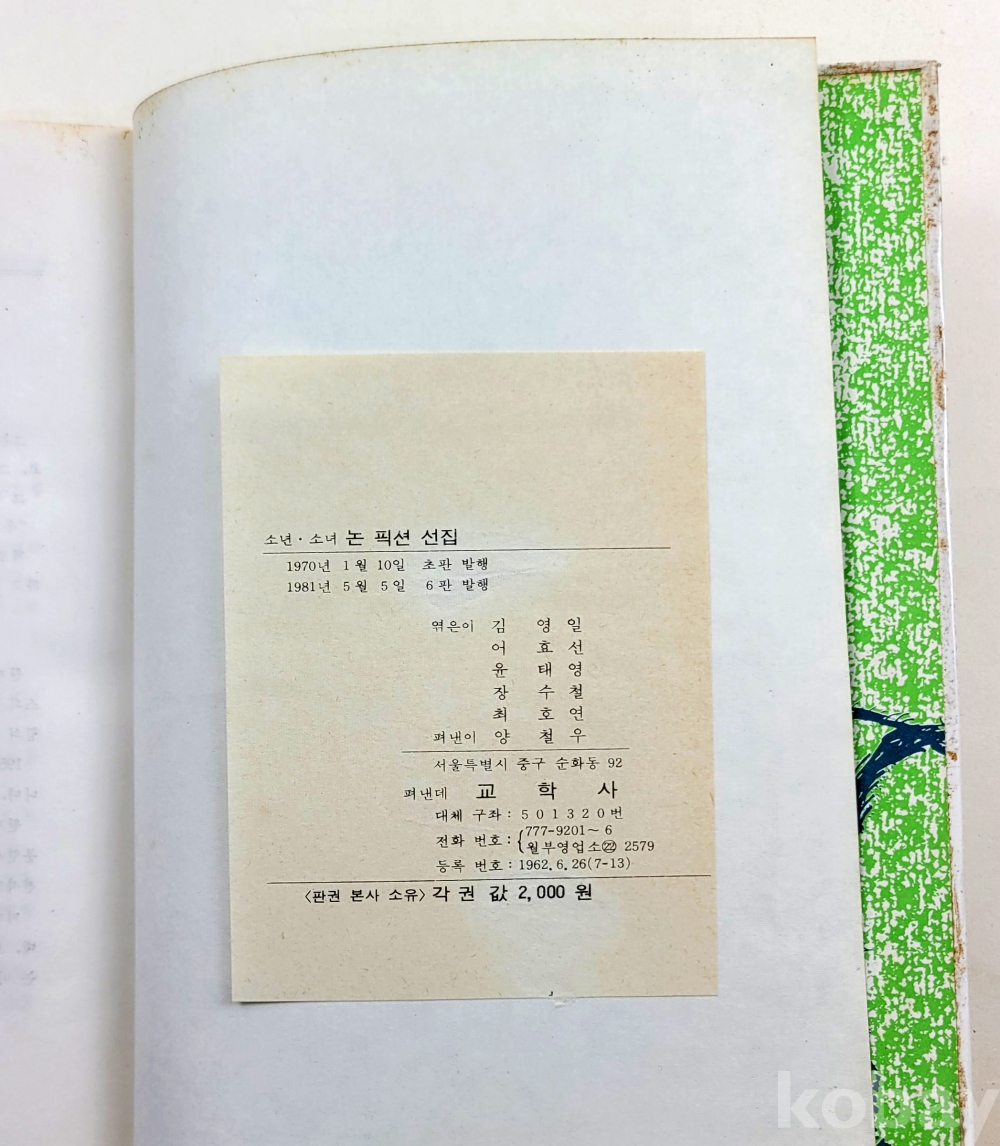 소년·소녀 논 픽션 선집
1970년 1월 10일 초판 발행
1981년 5월 5일 6판 발행
엮은이 김 영 일
어 효 선
윤 태 영
장 수 철
최 호 연
펴낸이 양 철 우
서울특별시 중구 순화동 92
펴낸데 교 학 사
대체 구좌: 501320번
전화 번호: { 777-9201~6
월부영업소㉒ 2579
등록 번호: 1962. 6. 26(7-13)
〈판권 본사 소유〉 각 권 값 2,000 원